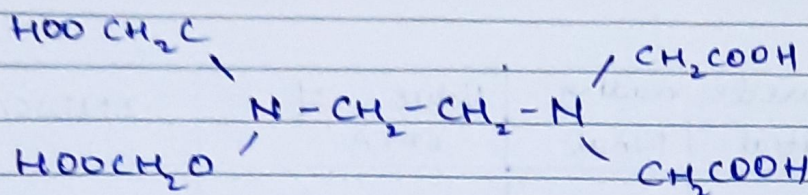 HOO CH₂C CH₂COOH
N - CH₂ - CH₂ - N
HOOCH₂O CH₂COOH